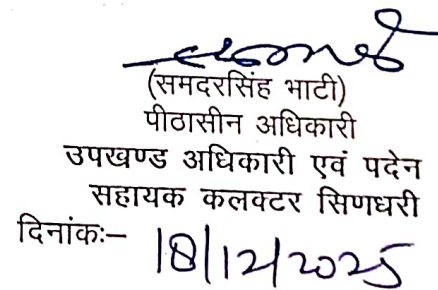 (समदरसिंह भाटी)
पीठासीन अधिकारी
उपखण्ड अधिकारी एवं पदेन
सहायक कलक्टर सिणधरी
दिनांकः– 18/12/2025